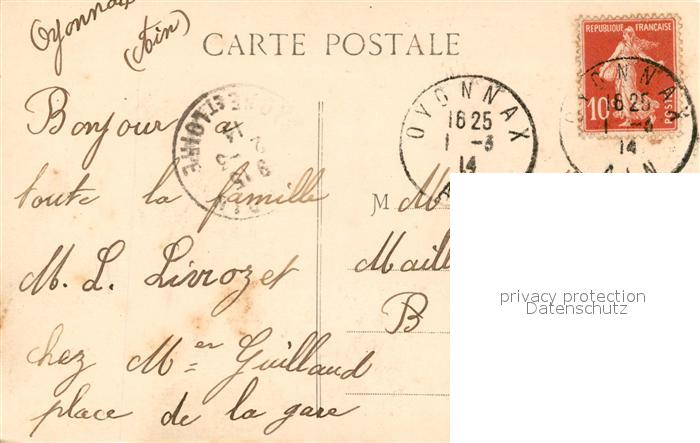 Oyonnax
(Ain)
CARTE POSTALE
REPUBLIQUE FRANÇAISE
10
POSTES
OYONNAX
16 25
1 -3
14
AIN
OYONNAX
16 25
1 -3
14
SAONE ET LOIRE
Bonjour a
toute la famille
M. L. Livrozet
chez Mer Guilland
place de la gare
M M
Maill
B
privacy protection
Datenschutz